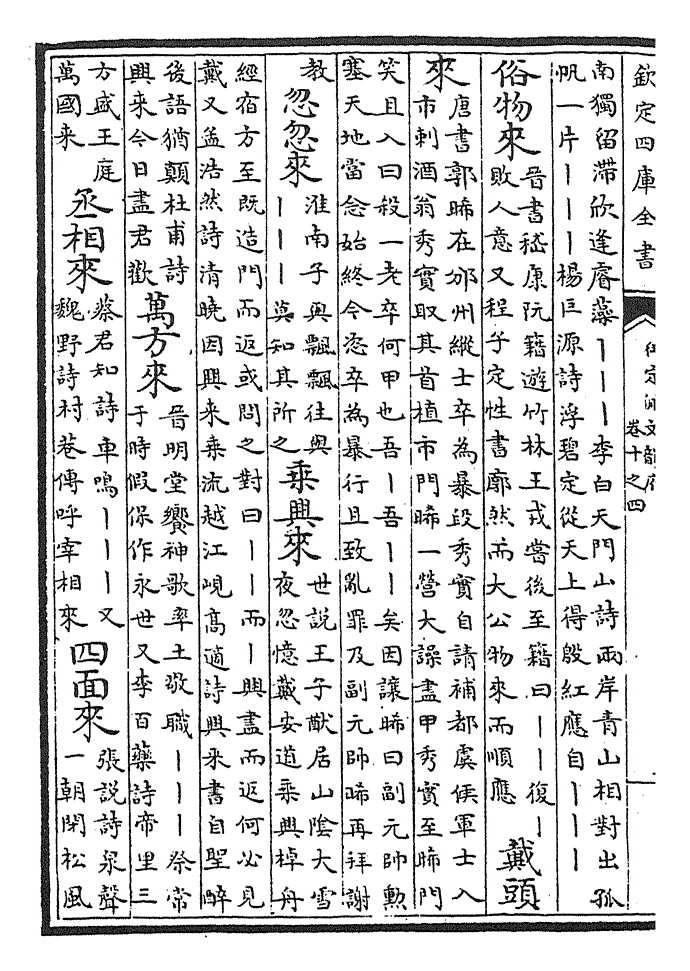 欽定四庫全書
卷十之四
南獨留滯欣逢睿藻丨丨丨李白天門山詩兩岸青山相對出孤
帆一片丨丨丨楊巨源詩浮碧定從天上得殷紅應自丨丨丨
俗物來
晉書嵇康阮籍遊竹林王戎嘗後至籍曰丨丨復丨
敗人意又程子定性書廓然而大公物來而順應
戴頭
來
唐書郭晞在邠州縱士卒為暴段秀實自請補都虞侯軍士入
市刺酒翁秀實取其首植市門晞一營大譟盡甲秀實至晞門
笑且入曰殺一老卒何甲也吾丨吾丨丨矣因讓晞曰副元帥勲
塞天地當念始終今恣卒為暴行且致亂罪及副元帥晞再拜謝
教
忽忽來
淮南子與飄飄往與
丨丨丨莫知其所之
乘興來
世說王子猷居山陰大雪
夜忽憶戴安道乘興棹舟
經宿方至既造門而返或問之對曰丨丨而丨興盡而返何必見
戴又孟浩然詩清曉因興来乘流越江峴高適詩興来書自聖醉
後語猶顛杜甫詩
興来今日盡君歡
萬方來
晉明堂饗神歌率土敬職丨丨丨祭常
于時假保作永世又李百藥詩帝里三
方盛王庭
萬國来
丞相來
蔡君知詩車鳴丨丨丨又
魏野詩村巷傳呼宰相來
四面來
張説詩泉聲
一朝閉松風